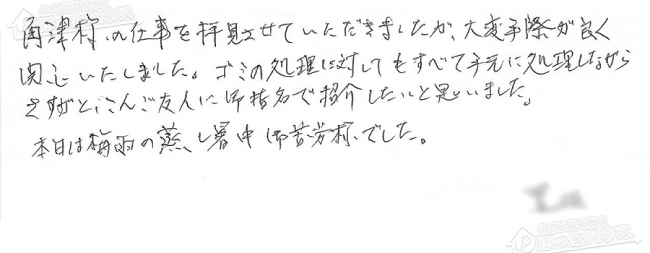 角津様の仕事を拝見させていただきましたが、大変手際が良く
関心いたしました。ゴミの処理に対してもすべて手元に処理しながら
さすがと、こんご友人に御指名で紹介したいと思いました。
本日は梅雨の蒸し暑中御苦労様でした。